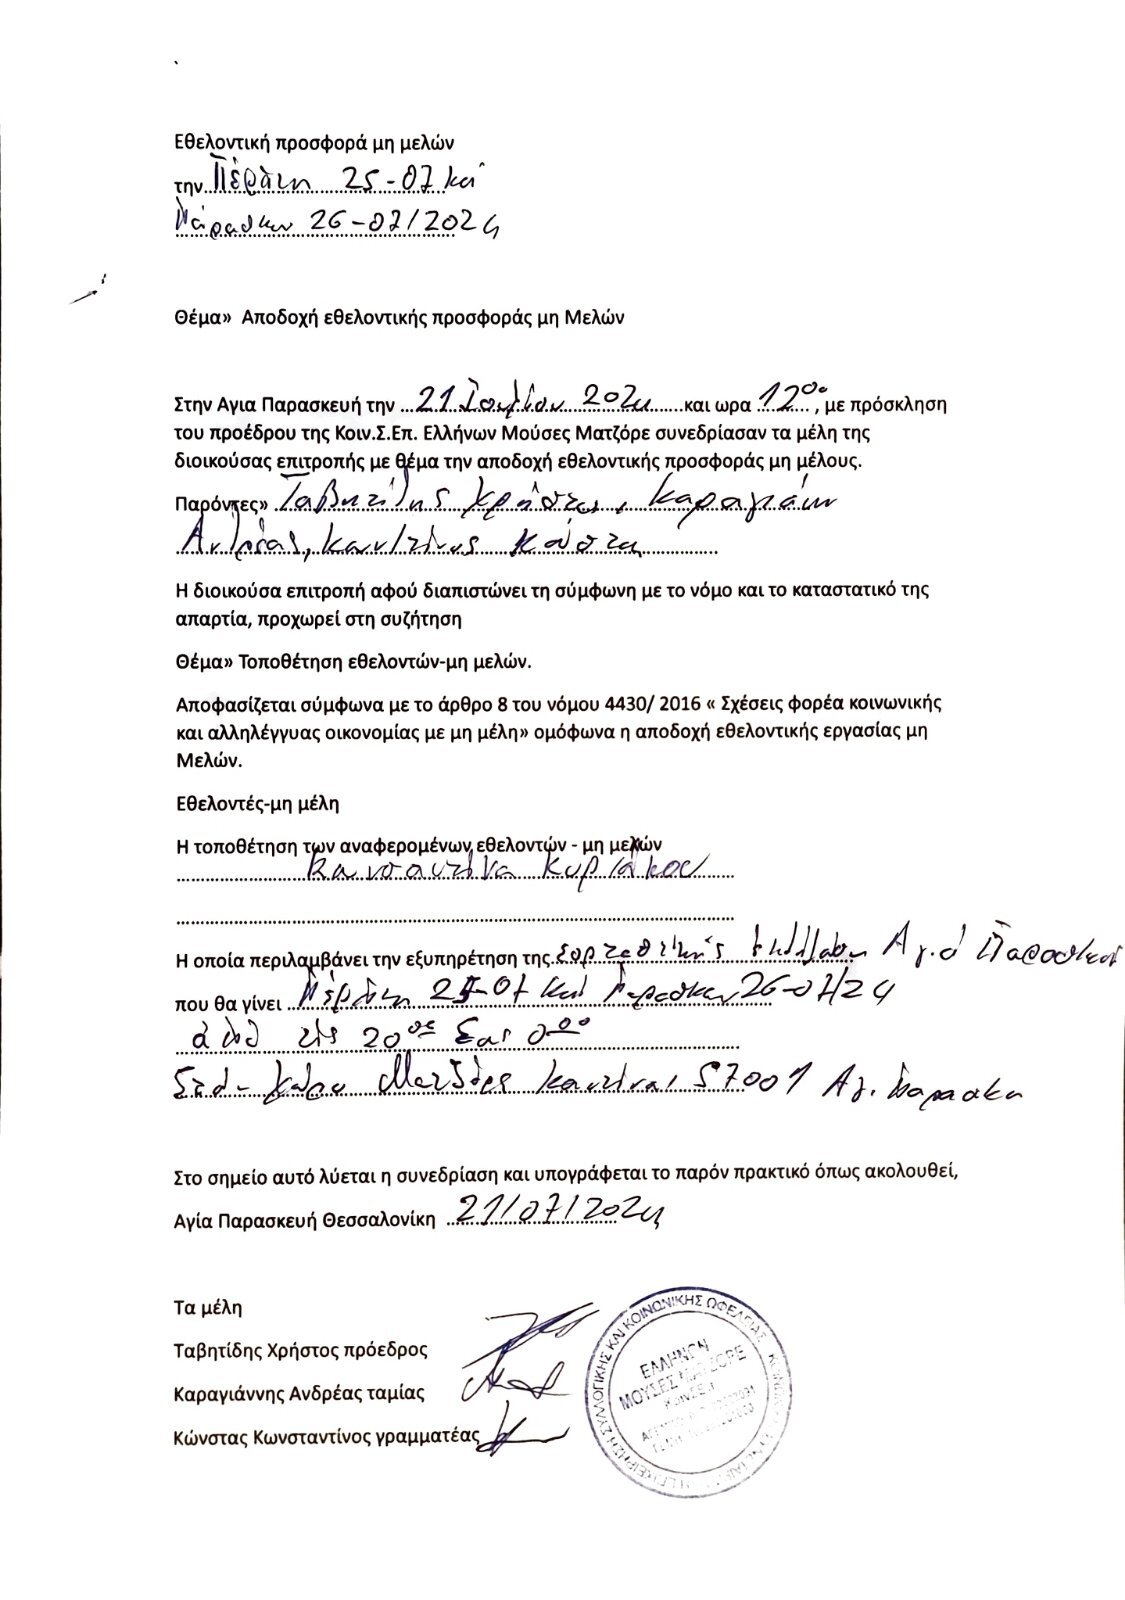 Εθελοντική προσφορά μη μελών
την Πέμπτη 25-07 και
Παρασκευή 26-07/2024
Θέμα» Αποδοχή εθελοντικής προσφοράς μη Μελών
Στην Αγια Παρασκευή την 21 Ιουλίου 2024 και ωρα 12⁰⁰, με πρόσκληση
του προέδρου της Κοιν.Σ.Επ. Ελλήνων Μούσες Ματζόρε συνεδρίασαν τα μέλη της
διοικούσας επιτροπής με θέμα την αποδοχή εθελοντικής προσφοράς μη μέλους.
Παρόντες» Ταβητίδης Χρήστος, Καραγιάννης
Ανδρέας, Κωνσταντίνος Κώνστας
Η διοικούσα επιτροπή αφού διαπιστώνει τη σύμφωνη με το νόμο και το καταστατικό της
απαρτία, προχωρεί στη συζήτηση
Θέμα» Τοποθέτηση εθελοντών-μη μελών.
Αποφασίζεται σύμφωνα με το άρθρο 8 του νόμου 4430/ 2016 « Σχέσεις φορέα κοινωνικής
και αλληλέγγυας οικονομίας με μη μέλη» ομόφωνα η αποδοχή εθελοντικής εργασίας μη
Μελών.
Εθελοντές-μη μέλη
Η τοποθέτηση των αναφερομένων εθελοντών - μη μελών
Κυριάκου
Η οποία περιλαμβάνει την εξυπηρέτηση της Αγ.
που θα γίνει Πέμπτη 25-07 και Παρασκευή 26-07/24
από τις 20⁰⁰ έως 0⁰⁰
57001 Αγ. Παρασκευή
Στο σημείο αυτό λύεται η συνεδρίαση και υπογράφεται το παρόν πρακτικό όπως ακολουθεί,
Αγία Παρασκευή Θεσσαλονίκη 21/07/2024
Τα μέλη
Ταβητίδης Χρήστος πρόεδρος
Καραγιάννης Ανδρέας ταμίας
Κώνστας Κωνσταντίνος γραμματέας
ΣΥΛΛΟΓΙΚΗΣ ΚΑΙ ΚΟΙΝΩΝΙΚΗΣ ΩΦΕΛΕΙΑΣ
ΕΛΛΗΝΩΝ
ΜΟΥΣΕΣ ΜΑΤΖΟΡΕ
ΚοινΣΕπ